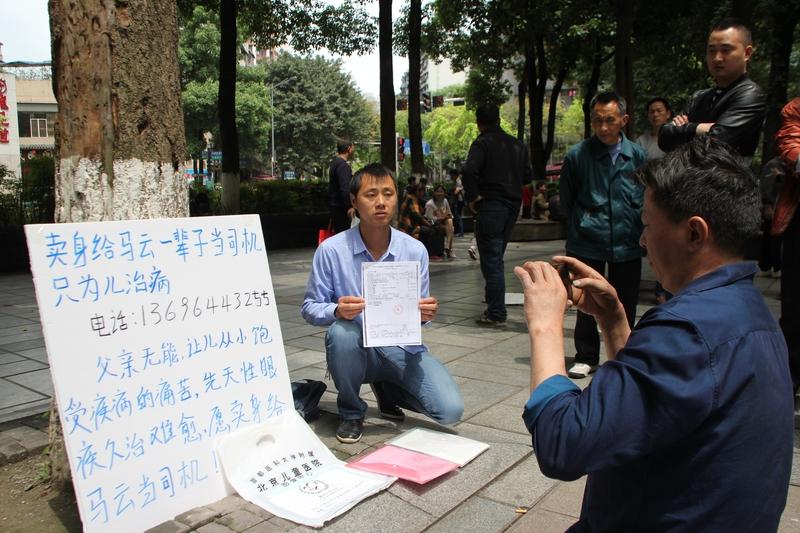 卖身给马云一辈子当司机
只为儿治病
电话:13696443255
父亲无能,让儿从小饱
受疾病的痛苦,先天性眼
疾久治难愈,愿卖身给
马云当司机!
首都医科大学附属
北京儿童医院